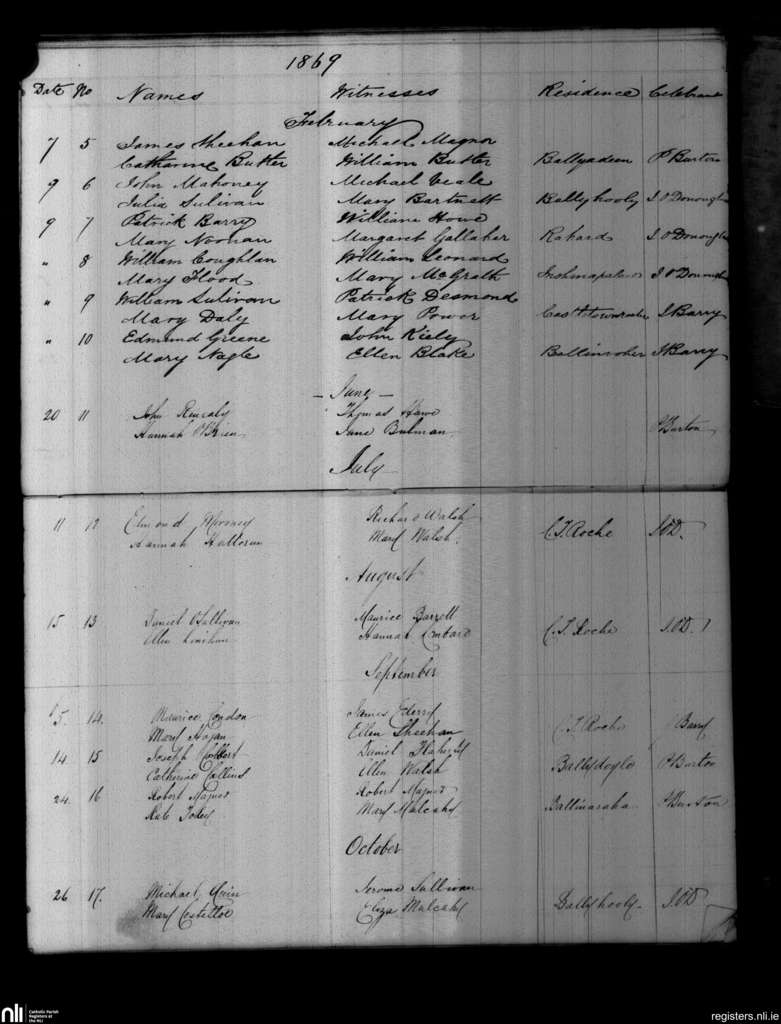 1869
Date No Names Witnesses Residence Celebrant
February
7 5 James Sheehan Michael Magnor
Catharine Butler William Butler Ballyadeen P Burton
9 6 John Mahoney Michael Veale
Julia Sulivan Mary Bartnett Ballyhooly J O Donoughue
9 7 Patrick Barry William Howe
Mary Noonan Margaret Gallaher Rahard J O Donoughue
" 8 William Coughlan William Leonard
Mary Flood Mary McGrath J O Donoughue
" 9 William Sulivan Patrick Desmond
Mary Daly Mary Power J Barry
" 10 Edmund Greene John Kiely
Mary Nagle Ellen Blake J Barry
- June -
20 11 John Thomas Hawe
Hannah O'Brien Jane Bulman P Burton
July
11 12 Edmond Mooney Richard Walsh
Hannah Halloran Mary Walsh C.T. Roche J.O.D.
August
15 13 Daniel O'Sullivan Maurice Barrett
Ellen Linihan Hannah C.T. Roche J.O.D.
September
5 14. Maurice Condon James
Mary Hogan Ellen Sheehan C.T. Roche J Barry
14. 15 Joseph Daniel Flaherty
Catherine Collins Ellen Walsh Ballydoyle P Burton
24. 16 Robert Magner Robert Magner
Kate Mary Mulcahy P Burton
October
26 17. Michael Quin Jerome Sullivan
Mary Costelloe Eliza Mulcahy Ballyhooly. J.O.D
nli Catholic Parish
Registers at
the NLI
registers.nli.ie